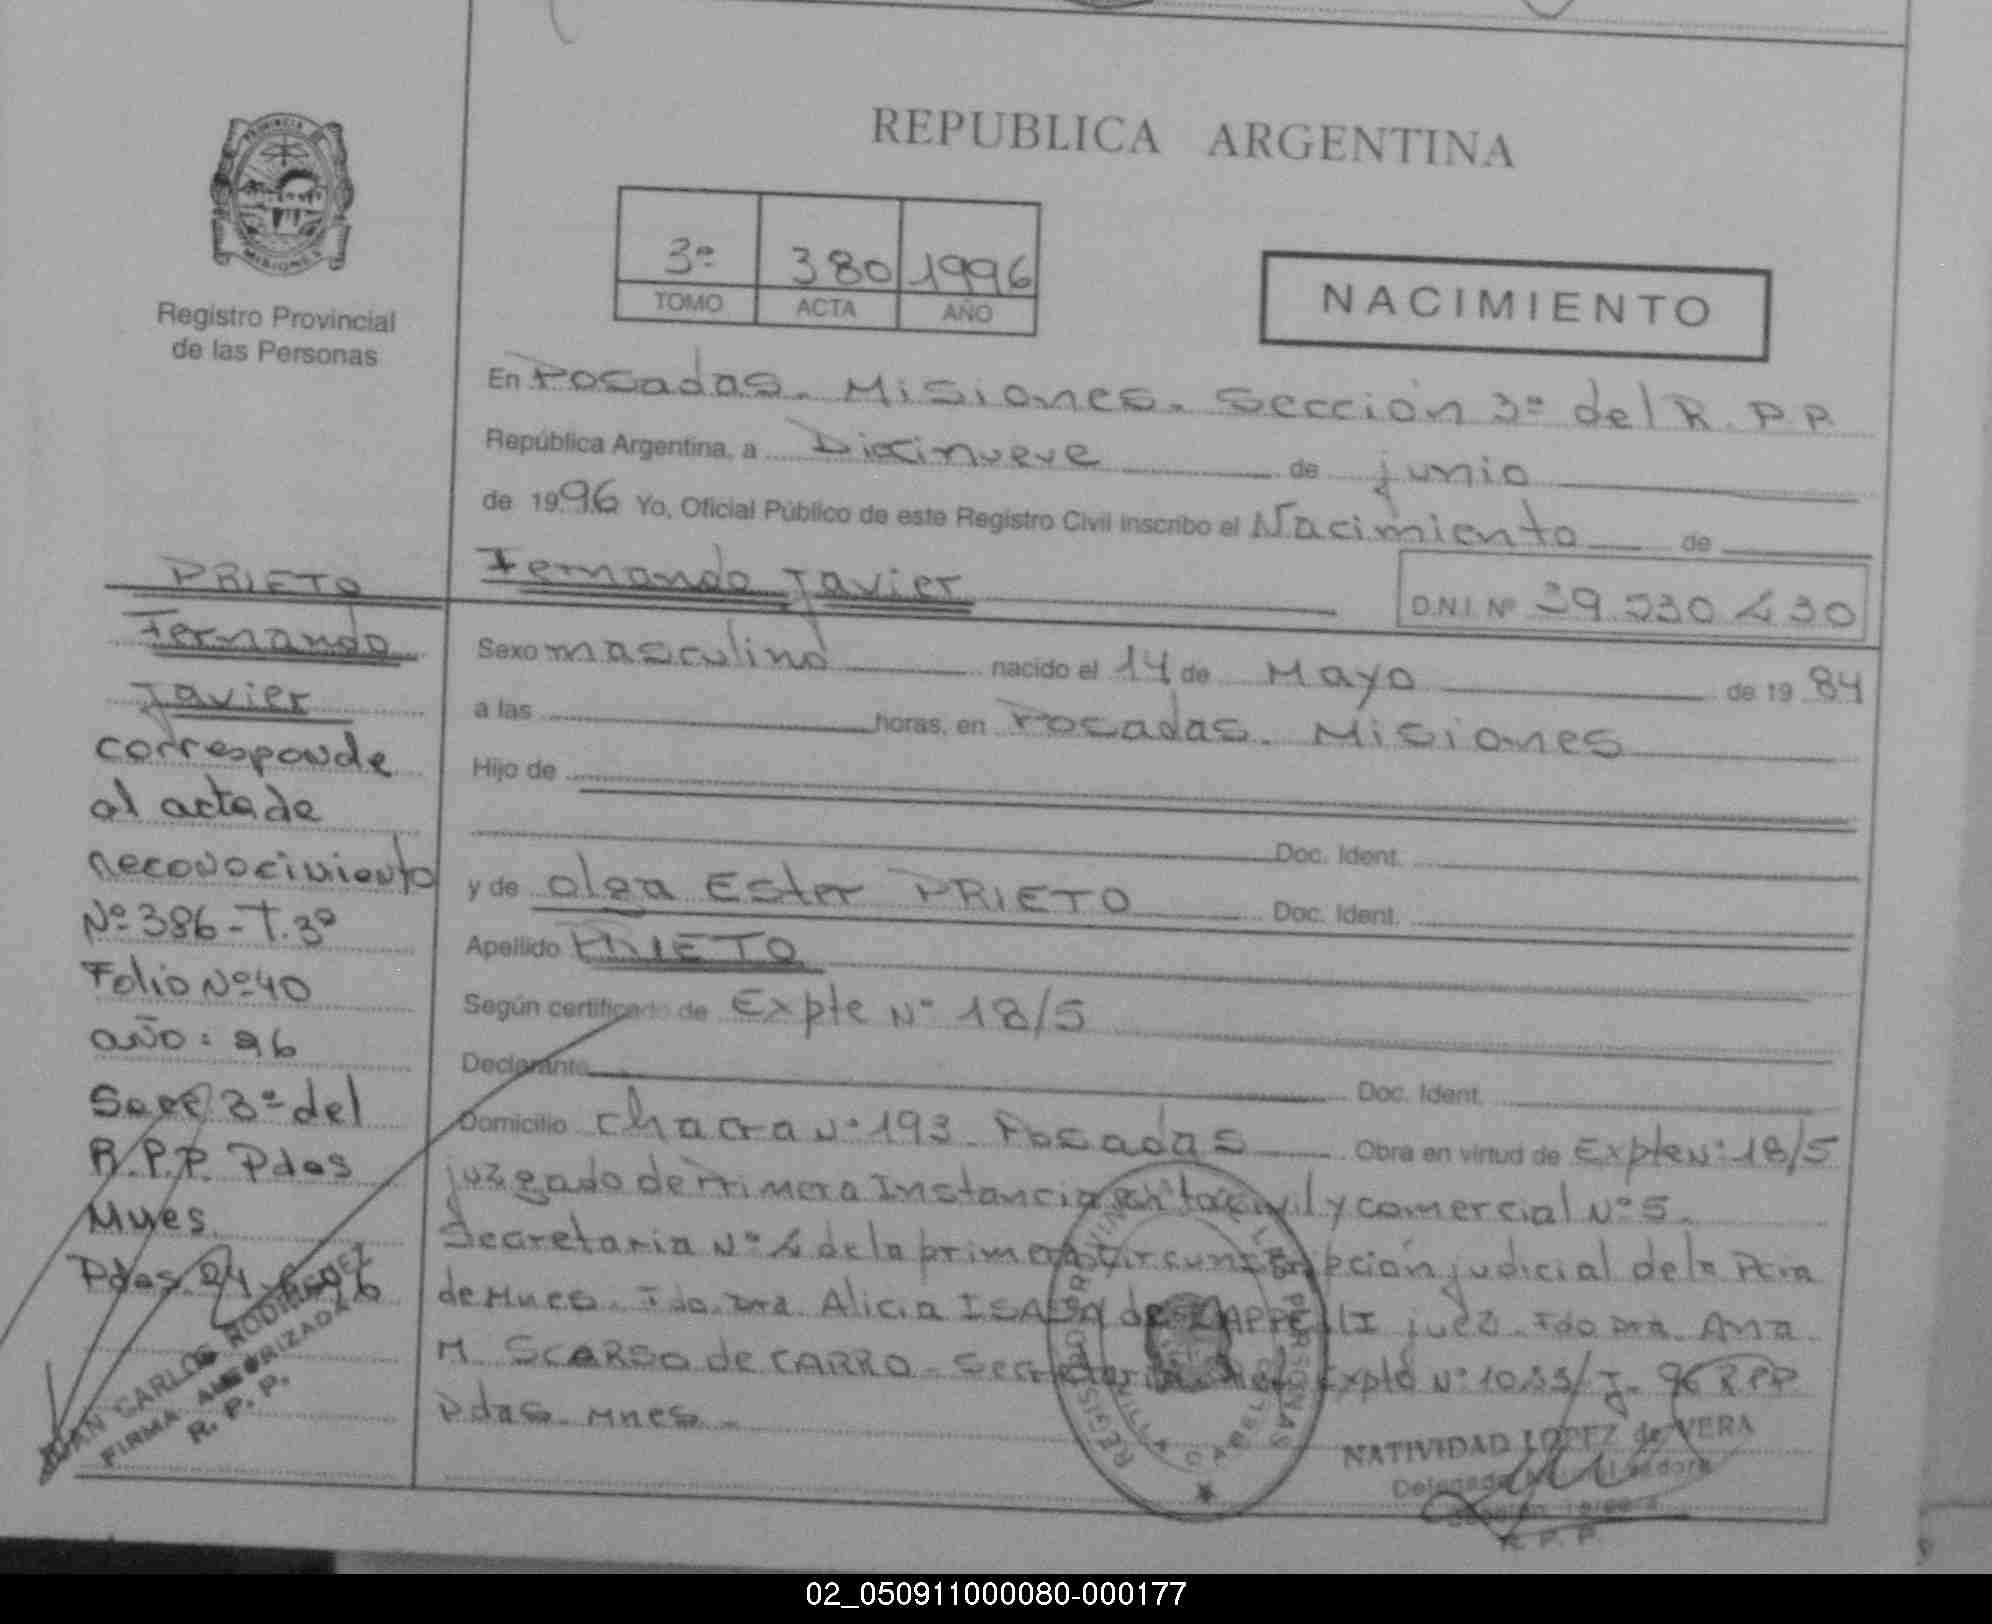 REPUBLICA ARGENTINA
PROVINCIA
MISIONES
Registro Provincial
de las Personas
3º 380 1996
TOMO ACTA AÑO
NACIMIENTO
En Posadas. Misiones. Sección 3º del R.P.P.
República Argentina, a Diecinueve de junio
de 1996 Yo, Oficial Público de este Registro Civil inscribo el Nacimiento de
Fernando Javier
D.N.I. Nº 39.530 430
Sexo masculino nacido el 14 de Mayo de 19 84
a las horas, en Posadas. Misiones
Hijo de
Doc. Ident.
y de Olga Ester PRIETO Doc. Ident.
Apellido PRIETO
Según certificado de Expte Nº 18/5
Declarante Doc. Ident.
Domicilio Chacra Nº 193. Posadas Obra en virtud de Expte Nº 18/5
juzgado de Primera Instancia en lo civil y comercial Nº 5.
Secretaria Nº 4 de la primera circunscripción judicial de la Pcia
de Mnes. Fdo. Dra. Alicia de juez. Fdo Dra. Ana
M. de CARRO. Secretaria Expte Nº 96 R.P.P.
Pdas. Mnes.
NATIVIDAD LOPEZ de VERA
Delegada
R. P. P.
PRIETO
Fernando
Javier
corresponde
al acta de
reconocimiento
Nº 386 - T. 3º
Folio Nº 40
año: 96
Secc 3º del
R.P.P. Pdas
Mnes.
Pdas. 24-6-96
JUAN CARLOS RODRIGUEZ
FIRMA AUTORIZADA
R. P. P.
02_050911000080-000177